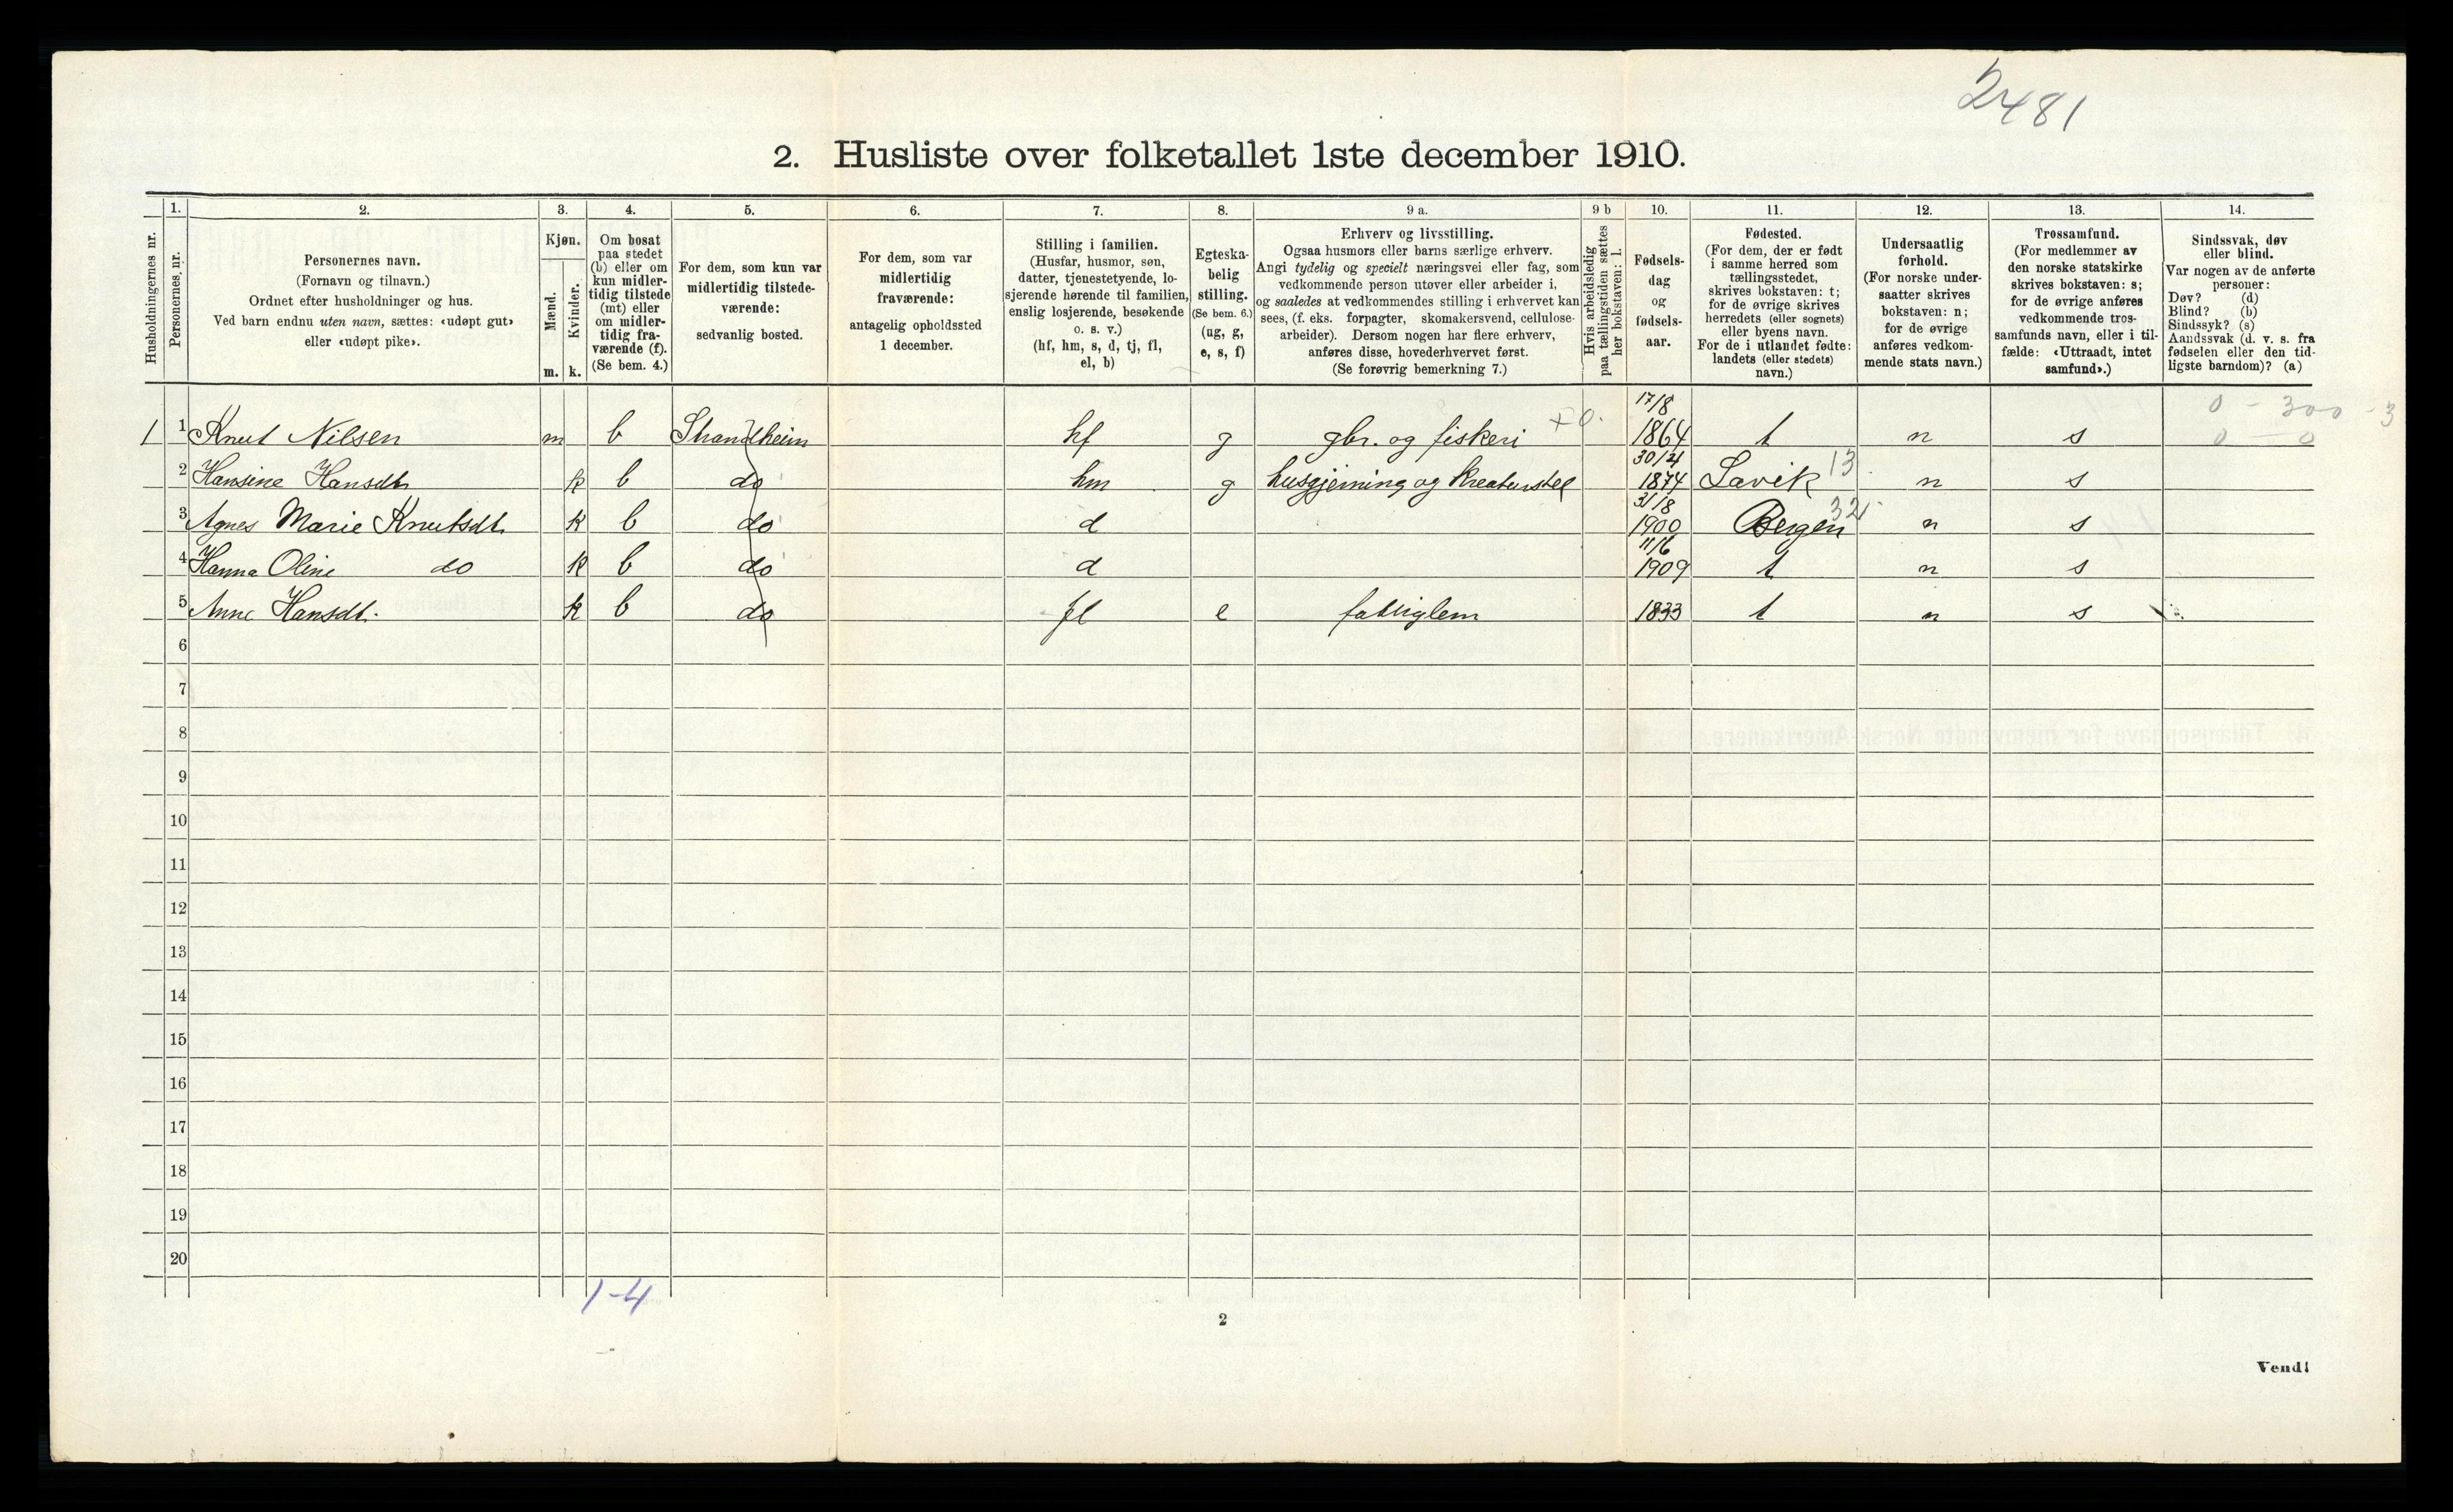 2481
2. Husliste over folketallet 1ste december 1910.
Husholdningernes nr.
1.
Personernes nr.
2.
Personernes navn.
(Fornavn og tilnavn.)
Ordnet efter husholdninger og hus.
Ved barn endnu uten navn, sættes: «udøpt gut»
eller «udøpt pike».
3.
Kjøn.
Mænd.
Kvinder.
m.
k.
4.
Om bosat
paa stedet
(b) eller om
kun midler-
tidig tilstede
(mt) eller
om midler-
tidig fra-
værende (f).
(Se bem. 4.)
5.
For dem, som kun var
midlertidig tilstede-
værende:
sedvanlig bosted.
6.
For dem, som var
midlertidig
fraværende:
antagelig opholdssted
1 december.
7.
Stilling i familien.
(Husfar, husmor, søn,
datter, tjenestetyende, lo-
sjerende hørende til familien,
enslig losjerende, besøkende
o. s. v.)
(hf, hm, s, d, tj, fl,
el, b)
8.
Egteska-
belig
stilling.
(Se bem. 6.)
(ug, g,
e, s, f)
9 a.
Erhverv og livsstilling.
Ogsaa husmors eller barns særlige erhverv.
Angi tydelig og specielt næringsvei eller fag, som
vedkommende person utøver eller arbeider i,
og saaledes at vedkommendes stilling i erhvervet kan
sees, (f. eks. forpagter, skomakersvend, cellulose-
arbeider). Dersom nogen har flere erhverv,
anføres disse, hovederhvervet først.
(Se forøvrig bemerkning 7.)
9 b
Hvis arbeidsledig
paa tællingstiden sættes
her bokstaven: l.
10.
Fødsels-
dag
og
fødsels-
aar.
11.
Fødested.
(For dem, der er født
i samme herred som
tællingsstedet,
skrives bokstaven: t;
for de øvrige skrives
herredets (eller sognets)
eller byens navn.
For de i utlandet fødte:
landets (eller stedets)
navn.)
12.
Undersaatlig
forhold.
(For norske under-
saatter skrives
bokstaven: n;
for de øvrige
anføres vedkom-
mende stats navn.)
13.
Trossamfund.
(For medlemmer av
den norske statskirke
skrives bokstaven: s;
for de øvrige anføres
vedkommende tros-
samfunds navn, eller i til-
fælde: «Uttraadt, intet
samfund».)
14.
Sindssvak, døv
eller blind.
Var nogen av de anførte
personer:
Døv? (d)
Blind? (b)
Sindssyk? (s)
Aandssvak (d. v. s. fra
fødselen eller den tid-
ligste barndom)? (a)
0 - 300 - 3
0 - 0
1 1 Knut Nilsen m b Strandheim hf g gbr. og fiskeri +0. 17/8 1864 t n s
2 Hansine Hansdt. k b do hm g husgjerning og kreaturstel 30/4 1874 Lavik 13 n s
3 Agnes Marie Knutsdt. k b do d 31/8 1900 Bergen 32 n s
4 Hanna Oline do k b do d 11/6 1909 t n s
5 Anne Hansdt. k b do fl e fattiglem 1833 t n s
6
7
8
9
10
11
12
13
14
15
16
17
18
19
20
1-4
2
Vend!